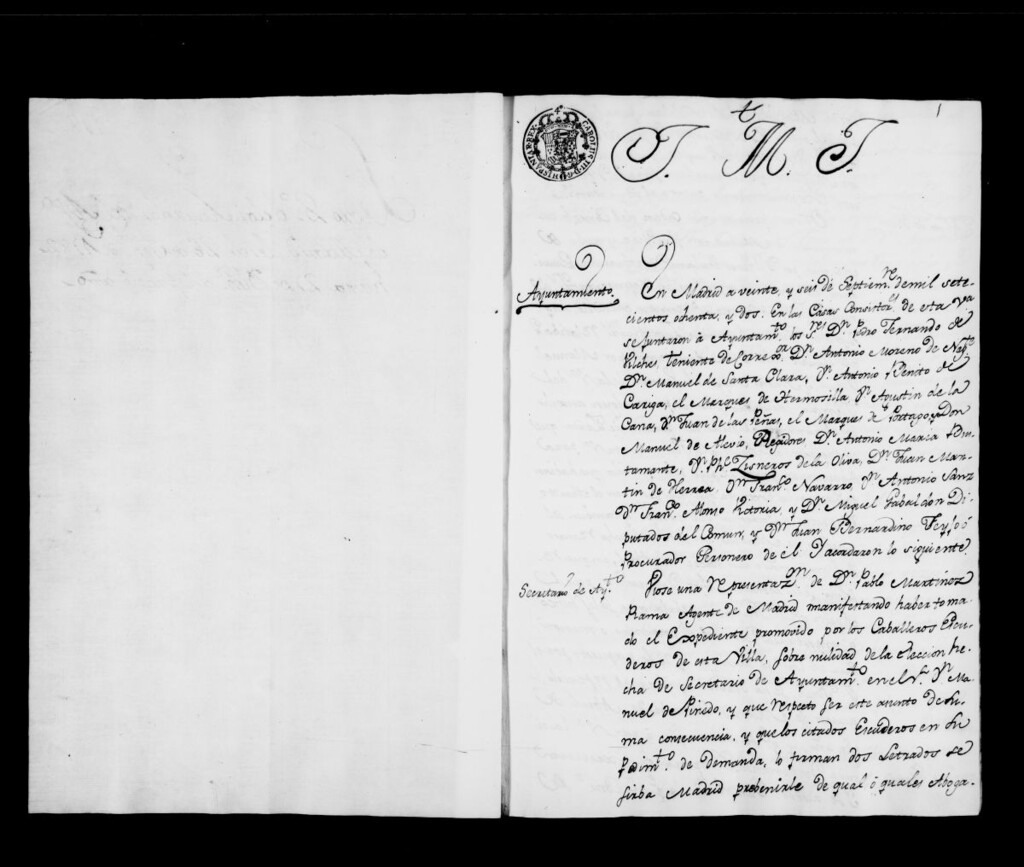 1
CAROLUS III D G HISPANIAR REX
J. M. J.
Ayuntamiento.
En Madrid a veinte, y seis de Septiem.re de mil sete-
cientos ochenta, y dos. En las Casas Consistor.s de esta V.a
se juntaron à Ayuntam.to los S.res D.n Pedro Fernando de
Vilches, teniente de Correx.or D.n Antonio Moreno de Neg.te
D.n Manuel de Santa Clara, D.n Antonio Benito de
Cariga, el Marques de Hermosilla, D.n Agustin de la
Cana, D.n Juan de las Peñas, el Marques de Portago, y Don
Manuel de Regidores D.n Antonio Maria Bus-
tamante, D.n Ph.e Zisneros de la Oliva, D.n Juan Mar-
tin de Herrea, D.n Fran.co Navarro, D.n Antonio Sanz
D.n Fran.co Alonso Victoria, y D.n Miguel Gabaldon Di-
putados del Comun, y D.n Juan Bernardino Feyjoó
Procurador Personero de èl. Y acordaron lo siguiente.
Secretario de Ay.to
Viose una representaz.on de D.n Pablo Martinez
Rama Agente de Madrid manifestando haber toma-
do el Expediente promovido por los Caballeros Escu-
deros de esta Villa, sobre nulidad de la eleccion he-
cha de Secretario de Ayuntam.to en el S.r D.n Ma-
nuel de Pinedo, y que respeto ser este asunto de su-
ma consecuencia, y que los citados Escuderos en su
pedim.to de demanda, lo firman dos Letrados se
sirba Madrid prebenirle de qual ò quales Aboga-